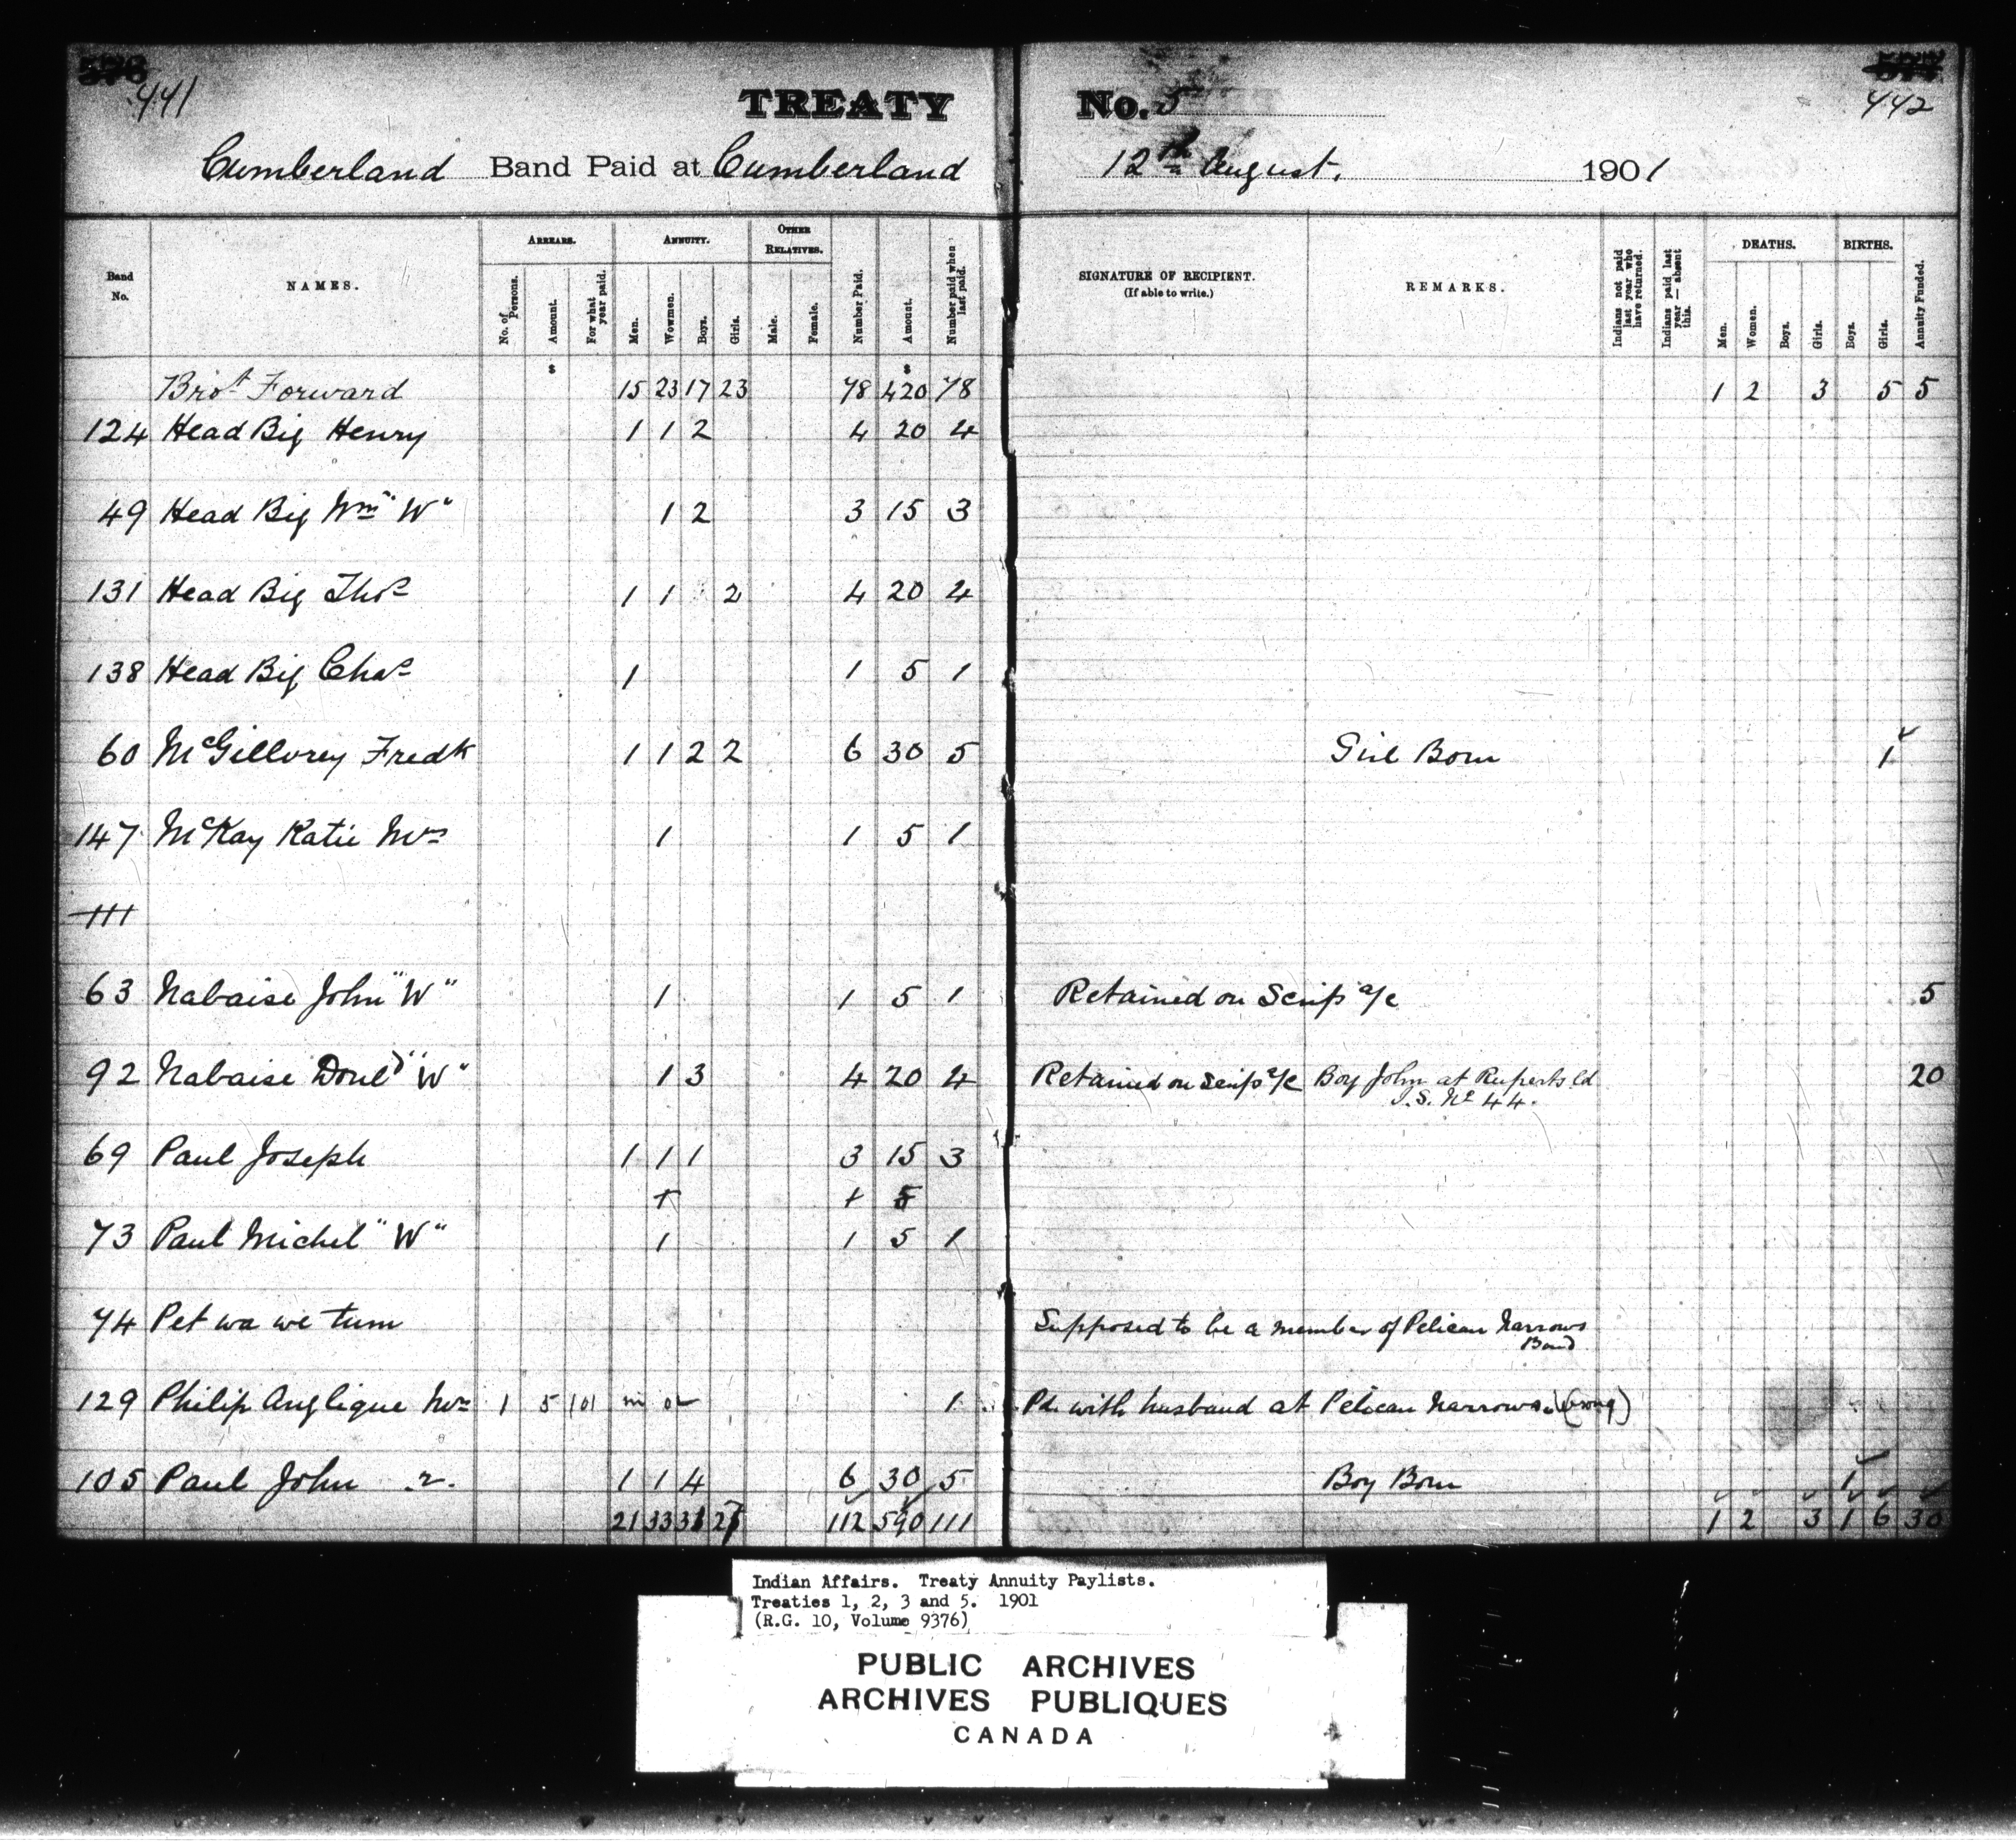 576 577
441 442
TREATY No. 5
Cumberland Band Paid at Cumberland 12th August. 1901
Band No. NAMES. ARREARS. No. of Persons. Amount. For what year paid. ANNUITY. Men. Wowmen. Boys. Girls. OTHER RELATIVES. Male. Female. Number Paid. Amount. Number paid when last paid. SIGNATURE OF RECIPIENT. (If able to write.) REMARKS. Indians not paid last year who have returned. Indians paid last year — absent this. DEATHS. Men. Women. Boys. Girls. BIRTHS. Boys. Girls. Annuity Funded.
$ $
Brot Forward 15 23 17 23 78 420 78 1 2 3 5 5
124 Head Big Henry 1 1 2 4 20 4
49 Head Big Wm "W" 1 2 3 15 3
131 Head Big Thos 1 1 2 4 20 4
138 Head Big Chas 1 1 5 1
60 McGillvrey Fredk 1 1 2 2 6 30 5 Girl Born 1
147 McKay Katie Mrs 1 1 5 1
111
63 Nabaise John "W" 1 1 5 1 Retained on Scrip a/c 5
92 Nabaise Donld "W" 1 3 4 20 4 Retained on Scrip a/c Boy John at Ruperts Ld 20
I.S. No 44.
69 Paul Joseph 1 1 1 3 15 3
1 1 5
73 Paul Michel "W" 1 1 5 1
74 Pet wa we tum Supposed to be a member of Pelican Narrows
Band
129 Philip Anglique Mrs 1 5 101 1 Pd. with husband at Pelican Narrows. (wrong)
105 Paul John 2. 1 1 4 6 30 5 Boy Born 1
21 33 31 27 112 590 111 1 2 3 1 6 30
Indian Affairs. Treaty Annuity Paylists.
Treaties 1, 2, 3 and 5. 1901
(R.G. 10, Volume 9376)
PUBLIC ARCHIVES
ARCHIVES PUBLIQUES
CANADA